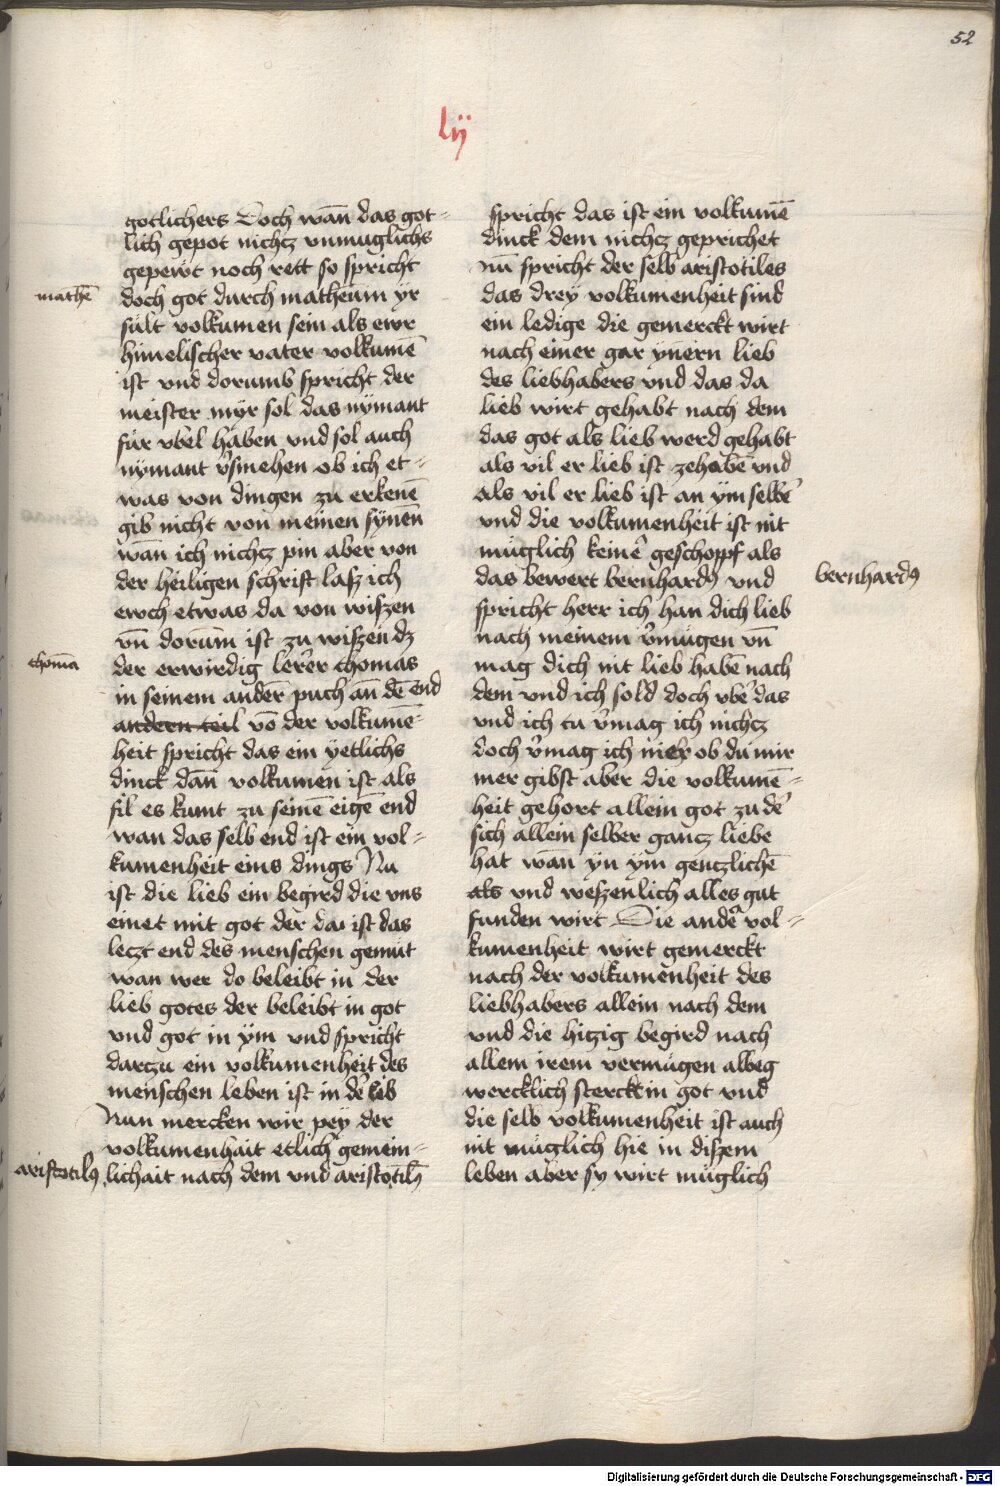 52
lij
gotlichers Doch wan̄ das got=
lich gepot nichcz vnmuglichs
gepewt noch rett so spricht
mathē
doch got durch matheum yr
sult volkumen sein als ewr
himelischer vater volkumē
ist vnd dorumb spricht der
meister myr sol das nymant
für vbel haben vnd sol auch
nymant v̓smehen ob ich et=
was von dingen zu erkenē
gib nicht von meinen synen
wan ich nichcz pin aber von
der heiligen schrift lasz ich
ewch etwas da von wiszen
vn̄ dorum̄ ist zu wiszen dz
thoma
der erwirdig lerer thomas
in seinem andern puch an dē end
andern teil vō der volkumē=
heit spricht das ein yetlichs
dinck dan̄ volkumen ist als
fil es kumt zu seinē eigē end
wan das selb end ist ein vol=
kumenheit eins dings Nu
ist die lieb ein begird die vns
einet mit got der da ist das
leczt end des menschen gemut
wan wer do beleibt in der
lieb gotes der beleibt in got
vnd got in ym vnd spricht
darczu ein volkumenheit des
menschen leben ist in der lib
Nun mercken wir pey der
volkumenhait etlich gemein=
aristotilꝰ
lichait nach dem vnd aristotilꝰ
spricht das ist ein volkumē
dinck dem nichcz geprichet
nu spricht der selb aristotiles
das drey volkumenheit sind
ein ledige die gemerckt wirt
nach einer gar ynern lieb
des liebhabers vnd das da
lieb wirt gehabt nach dem
das got als lieb werd gehabt
als vil er lieb ist zehabē vnd
als vil er lieb ist an ym selbē
vnd die volkumenheit ist nit
muglich keinē geschopf als
das bewert bernhardꝰ vnd
bernhardꝰ
spricht herr ich han dich lieb
nach meinem v̓mugen vn̄
mag dich nit lieb habē nach
dem vnd ich sold doch vbē das
vnd ich tu v̓mag ich nichcz
doch v̓mag ich mer ob du mir
mer gibst aber die volkumē=
heit gehort allein got zu dē
sich allein selber gancz liebe
hat wan yn ym genczlichē
als vnd weszenlich alles gut
funden wirt Die andē vol=
kumenheit wirt gemerckt
nach der volkumenheit des
liebhabers allein nach dem
vnd die hitzig begird nach
allem irem vermugen albeg
wercklich sterckt in got vnd
die selb volkumenheit ist auch
nit muglich hie in diszem
leben aber sy wirt muglich
Digitalisierung gefördert durch die Deutsche Forschungsgemeinschaft - DFG